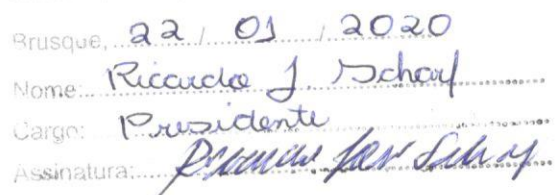 Brusque, 22 / 01 / 2020
Nome: Ricardo J. Scharf
Cargo: Presidente
Assinatura: